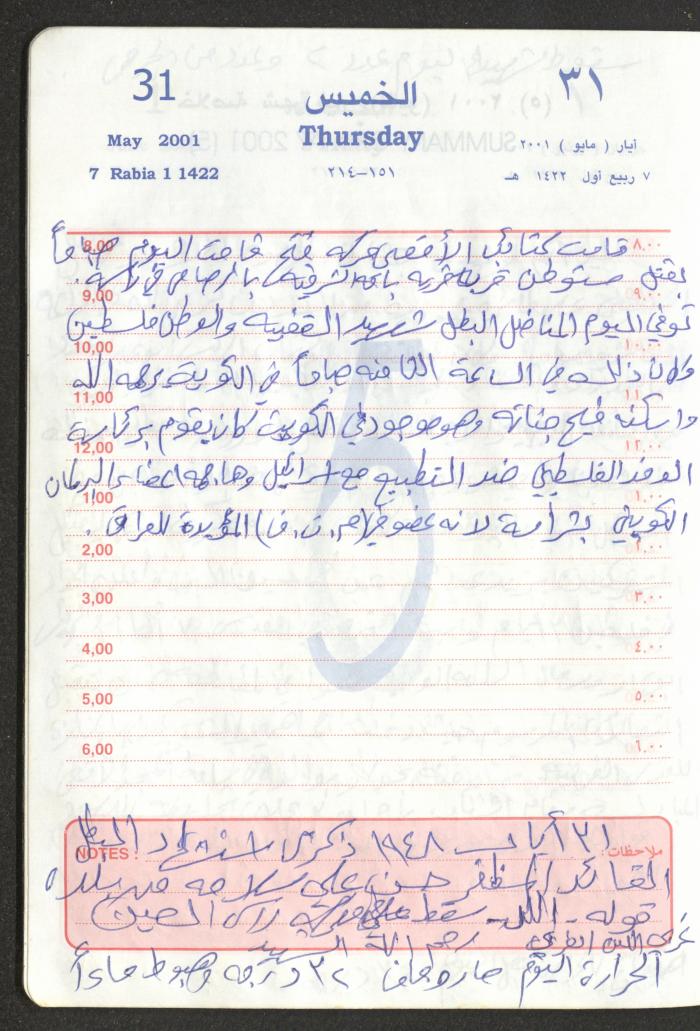 31 الخميس ٣١
May 2001 Thursday أيار ( مايو ) ٢٠٠١
7 Rabia 1 1422 ١٥١–٢١٤ ٧ ربيع أول ١٤٢٢ هـ
8,00 قامت كتائب الأقصى حركة فتح قامت اليوم صباحاً ٨،٠٠
بقتل مستوطن قرب قرية باقة الشرقية بالرصاص في رأسه .
9,00 ٩،٠٠
توفي اليوم المناضل البطل شهيد القضية والوطن فلسطين
10,00 ١٠،٠٠
وكان ذلك في الساعة الثامنة صباحاً في الكويت رحمه الله
11,00 ١١،٠٠
واسكنه فسيح جناته وهو موجود في الكويت كان يقوم برئاسة
12,00 ١٢،٠٠
الوفد الفلسطيني ضد التطبيع مع اسرائيل وهاجمه اعضاء البرلمان
1,00 ١،٠٠
الكويتي بشراسة لانه عضو في (م.ت.ف) المؤيدة للعراق .
2,00 ٢،٠٠
3,00 ٣،٠٠
4,00 ٤،٠٠
5,00 ٥،٠٠
6,00 ٦،٠٠
٣١ أيار ١٩٤٨ ذكرى استشهاد البطل
NOTES : ملاحظات:
القائد حسن علي سلامة من بلدة
قوله - اللد - سقط في معركة راس العين
رحم الله الشهيد
الحرارة اليوم صار وجاف ٣٢ درجة وهبوط